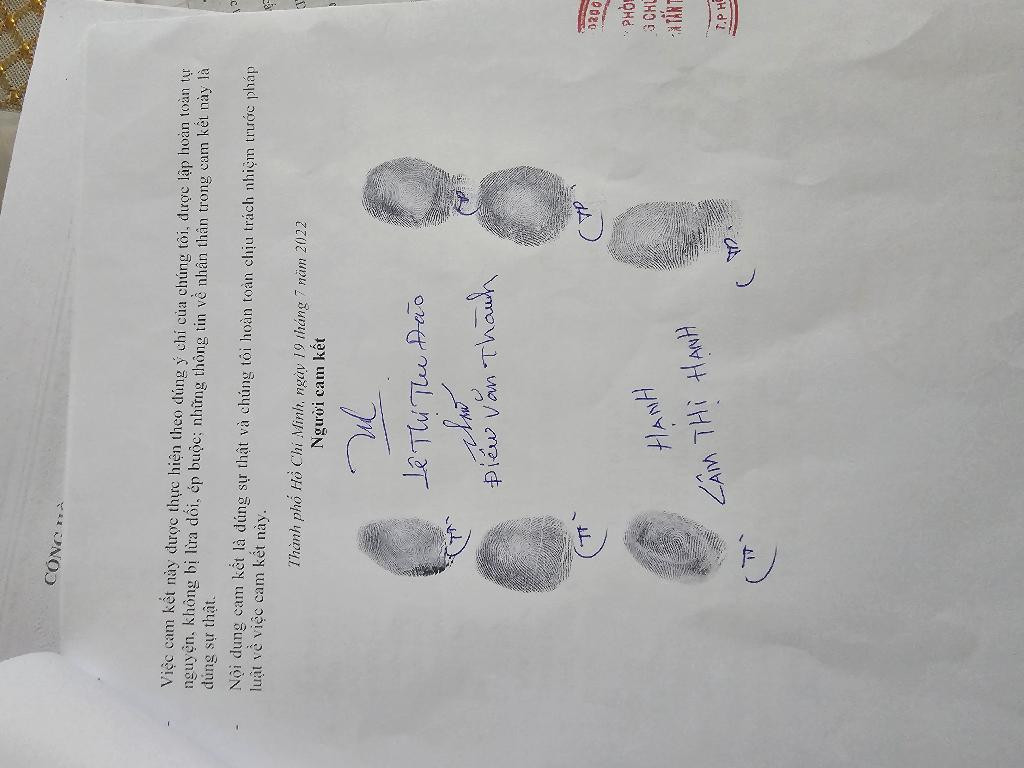 CÔNG
- Việc cam kết này được thực hiện theo đúng ý chí của chúng tôi, được lập hoàn toàn tự
nguyện, không bị lừa dối, ép buộc; những thông tin về nhân thân trong cam kết này là
đúng sự thật.
- Nội dung cam kết là đúng sự thật và chúng tôi hoàn toàn chịu trách nhiệm trước pháp
luật về việc cam kết này.
Thành phố Hồ Chí Minh, ngày 19 tháng 7 năm 2022
Người cam kết
Lê Thị Thu Đào
Điểu Văn Thành
HẠNH
LÂM THỊ HẠNH
0200
PHÒN
G CHỨ
T.P H